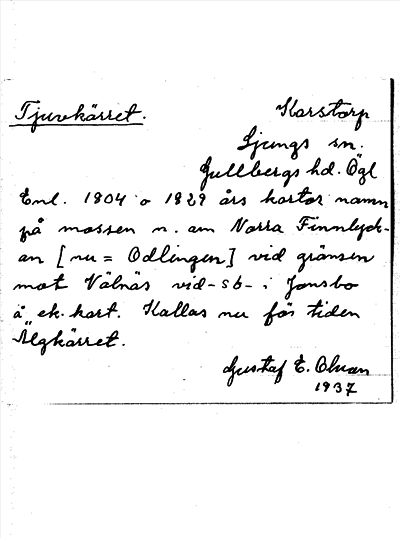 Tjuvkärret.
Karstorp
Ljungs sn.
Gullbergs hd. Ögl
Enl. 1804 o 1829 års kartor namn
på mossen n. om Norra Finnlyck-
an [nu = Odlingen] vid gränsen
mot Välnäs vid - sb - i Jonsbo
å ek. kart. Kallas nu för tiden
Älgkärret.
Gustaf E. Olson
1937